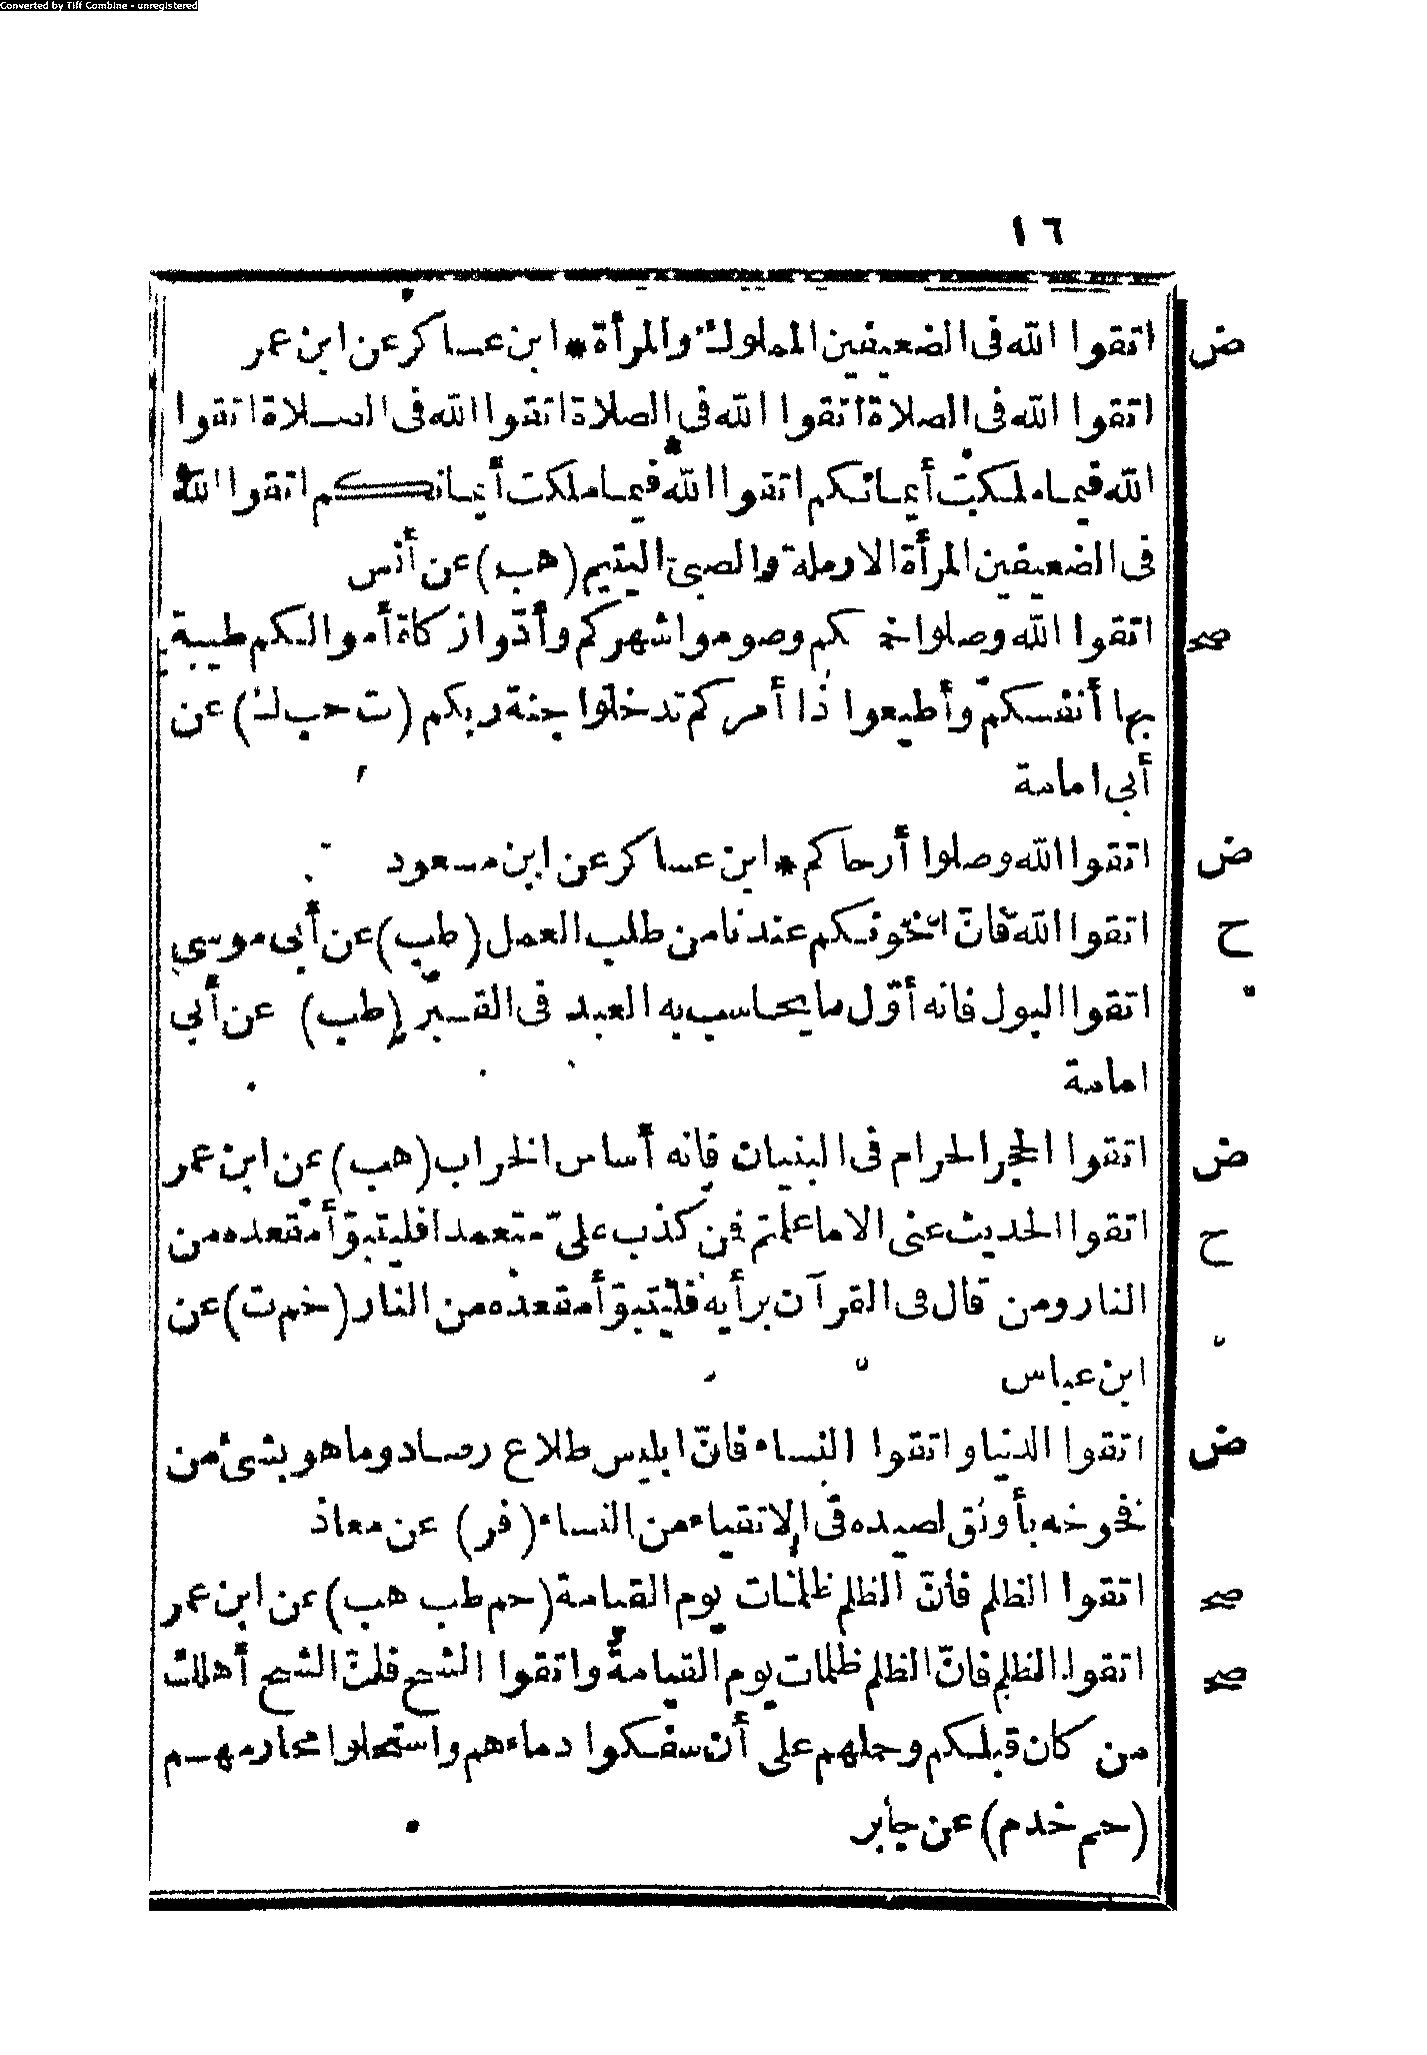 Converted by Tiff Combine - unregistered
١٦
ض اتقوا الله فى الضعيفين المملوك والمرأة * ابن عساكر عن ابن عمر
اتقوا الله فى الصلاة اتقوا الله فى الصلاة اتقوا الله فى الصلاة اتقوا
الله فيما ملكت أيمانكم اتقوا الله فيما ملكت أيمانكم اتقوا الله
فى الضعيفين المرأة الارملة والصبى اليتيم (هب) عن أنس
صح اتقوا الله وصلوا خمسكم وصوموا شهركم وأدّوا زكاة أموالكم طيبة
بها أنفسكم وأطيعوا ذا أمركم تدخلوا جنة ربكم (ت حب ك) عن
أبى امامة
ض اتقوا الله وصلوا أرحاكم * ابن عساكر عن ابن مسعود
ح اتقوا الله فانّ أخونكم عندنا من طلب العمل (طب) عن أبى موسى
اتقوا البول فانه أوّل ما يحاسب به العبد فى القبر (طب) عن أبى
امامة
ض اتقوا الحجر الحرام فى البنيان فانه أساس الخراب (هب) عن ابن عمر
ح اتقوا الحديث عنى الا ما علمتم فمن كذب علىّ متعمدا فليتبوّأ مقعده من
النار ومن قال فى القرآن برأيه فليتبوّأ مقعده من النار (حم ت) عن
ابن عباس
ض اتقوا الدنيا واتقوا النساء فانّ ابليس طلاع رصاد وما هو بشئ من
فخوخه بأوثق لصيده فى الاتقياء من النساء (فر) عن معاذ
صح اتقوا الظلم فأنّ الظلم ظلمات يوم القيامة (حم طب هب) عن ابن عمر
صح اتقوا الظلم فانّ الظلم ظلمات يوم القيامة واتقوا الشح فانّ الشح أهلك
من كان قبلكم وحملهم على أن سفكوا دماءهم واستحلوا محارمهم
(حم خدم) عن جابر